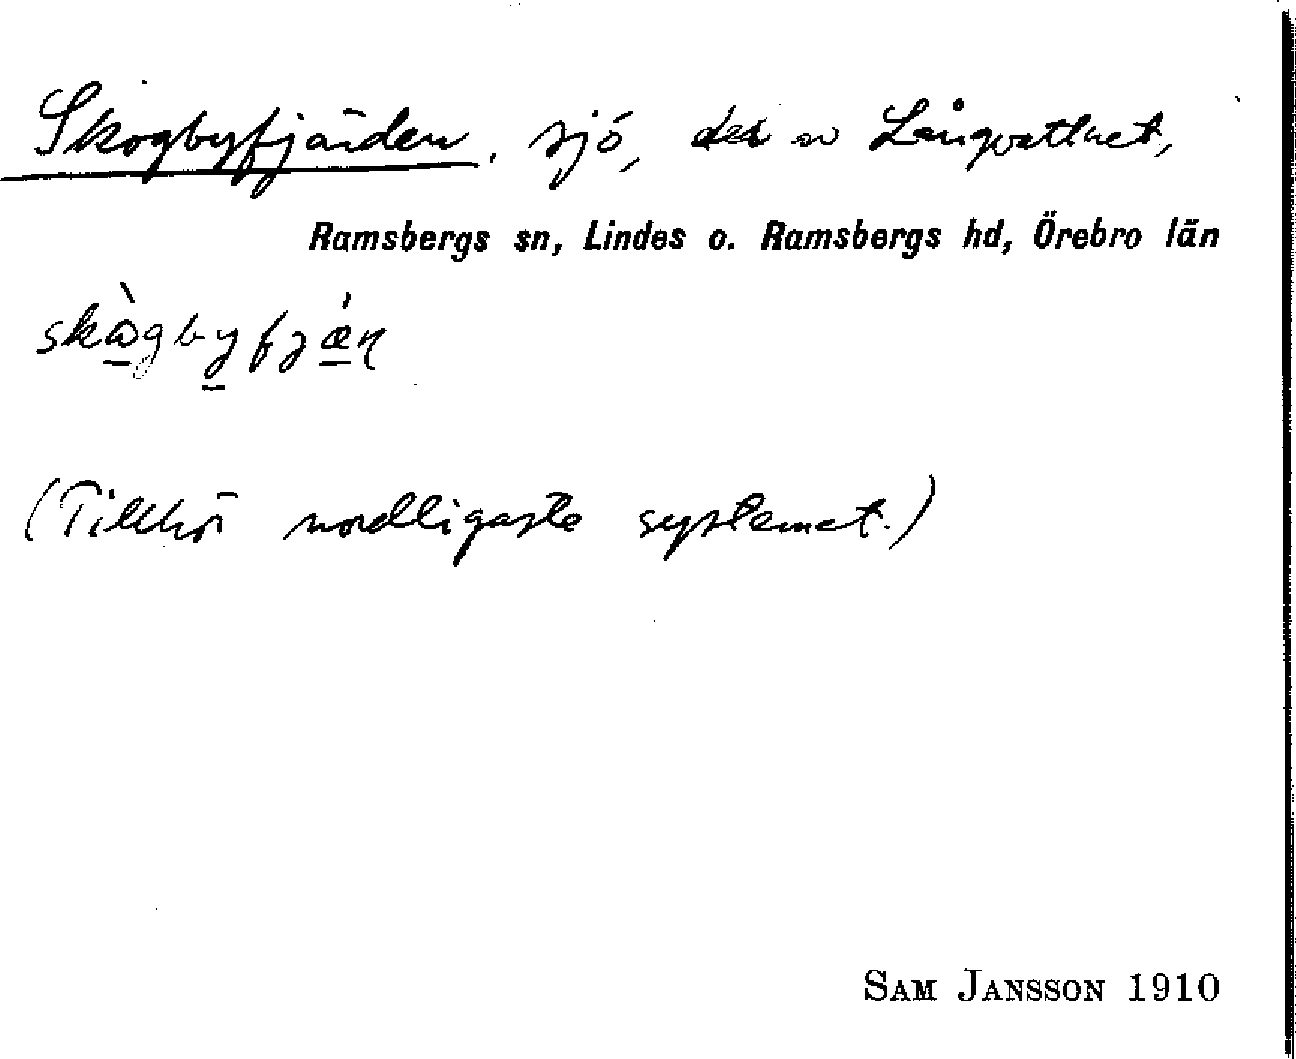 Skogbyfjärden, sjö, del av Långvattnet,
Ramsbergs sn, Lindes o. Ramsbergs hd, Örebro län
(Tillhör nordligaste systemet.)
SAM JANSSON 1910